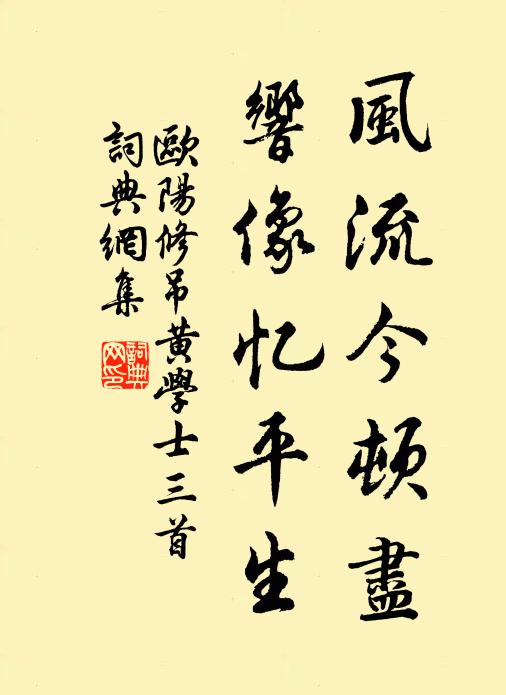 風流今頓盡
響像忆平生
歐陽修吊黃學士三首
詞典網集
詞典網印